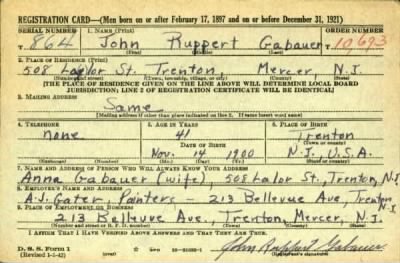 REGISTRATION CARD—(Men born on or after February 17, 1897 and on or before December 31, 1921)
SERIAL NUMBER 1. NAME (Print) ORDER NUMBER
T- 864 John Ruppert Gabauer T- 10693
(First) (Middle) (Last)
2. PLACE OF RESIDENCE (Print)
508 Lalor St. Trenton, Mercer, N.J.
(Number and street) (Town, township, village, or city) (County) (State)
[THE PLACE OF RESIDENCE GIVEN ON THE LINE ABOVE WILL DETERMINE LOCAL BOARD
JURISDICTION; LINE 2 OF REGISTRATION CERTIFICATE WILL BE IDENTICAL]
3. MAILING ADDRESS
Same
[Mailing address if other than place indicated on line 2. If same insert word same]
4. TELEPHONE 5. AGE IN YEARS 6. PLACE OF BIRTH
none 41 Trenton
DATE OF BIRTH
Nov. 14 1900 N.J., U.S.A.
7. NAME AND ADDRESS OF PERSON WHO WILL ALWAYS KNOW YOUR ADDRESS
Anna Gabauer (wife), 508 Lalor St., Trenton, N.J.
8. EMPLOYER'S NAME AND ADDRESS
A.J. Gater, Painters - 213 Bellevue Ave, Trenton
9. PLACE OF EMPLOYMENT OR BUSINESS N.J.
213 Bellevue Ave., Trenton, Mercer, N.J.
(Number and street or R. F. D. number) (Town) (County) (State)
I AFFIRM THAT I HAVE VERIFIED ABOVE ANSWERS AND THAT THEY ARE TRUE.
D. S. S. Form 1
(Revised 1-1-42) John Ruppert Gabauer